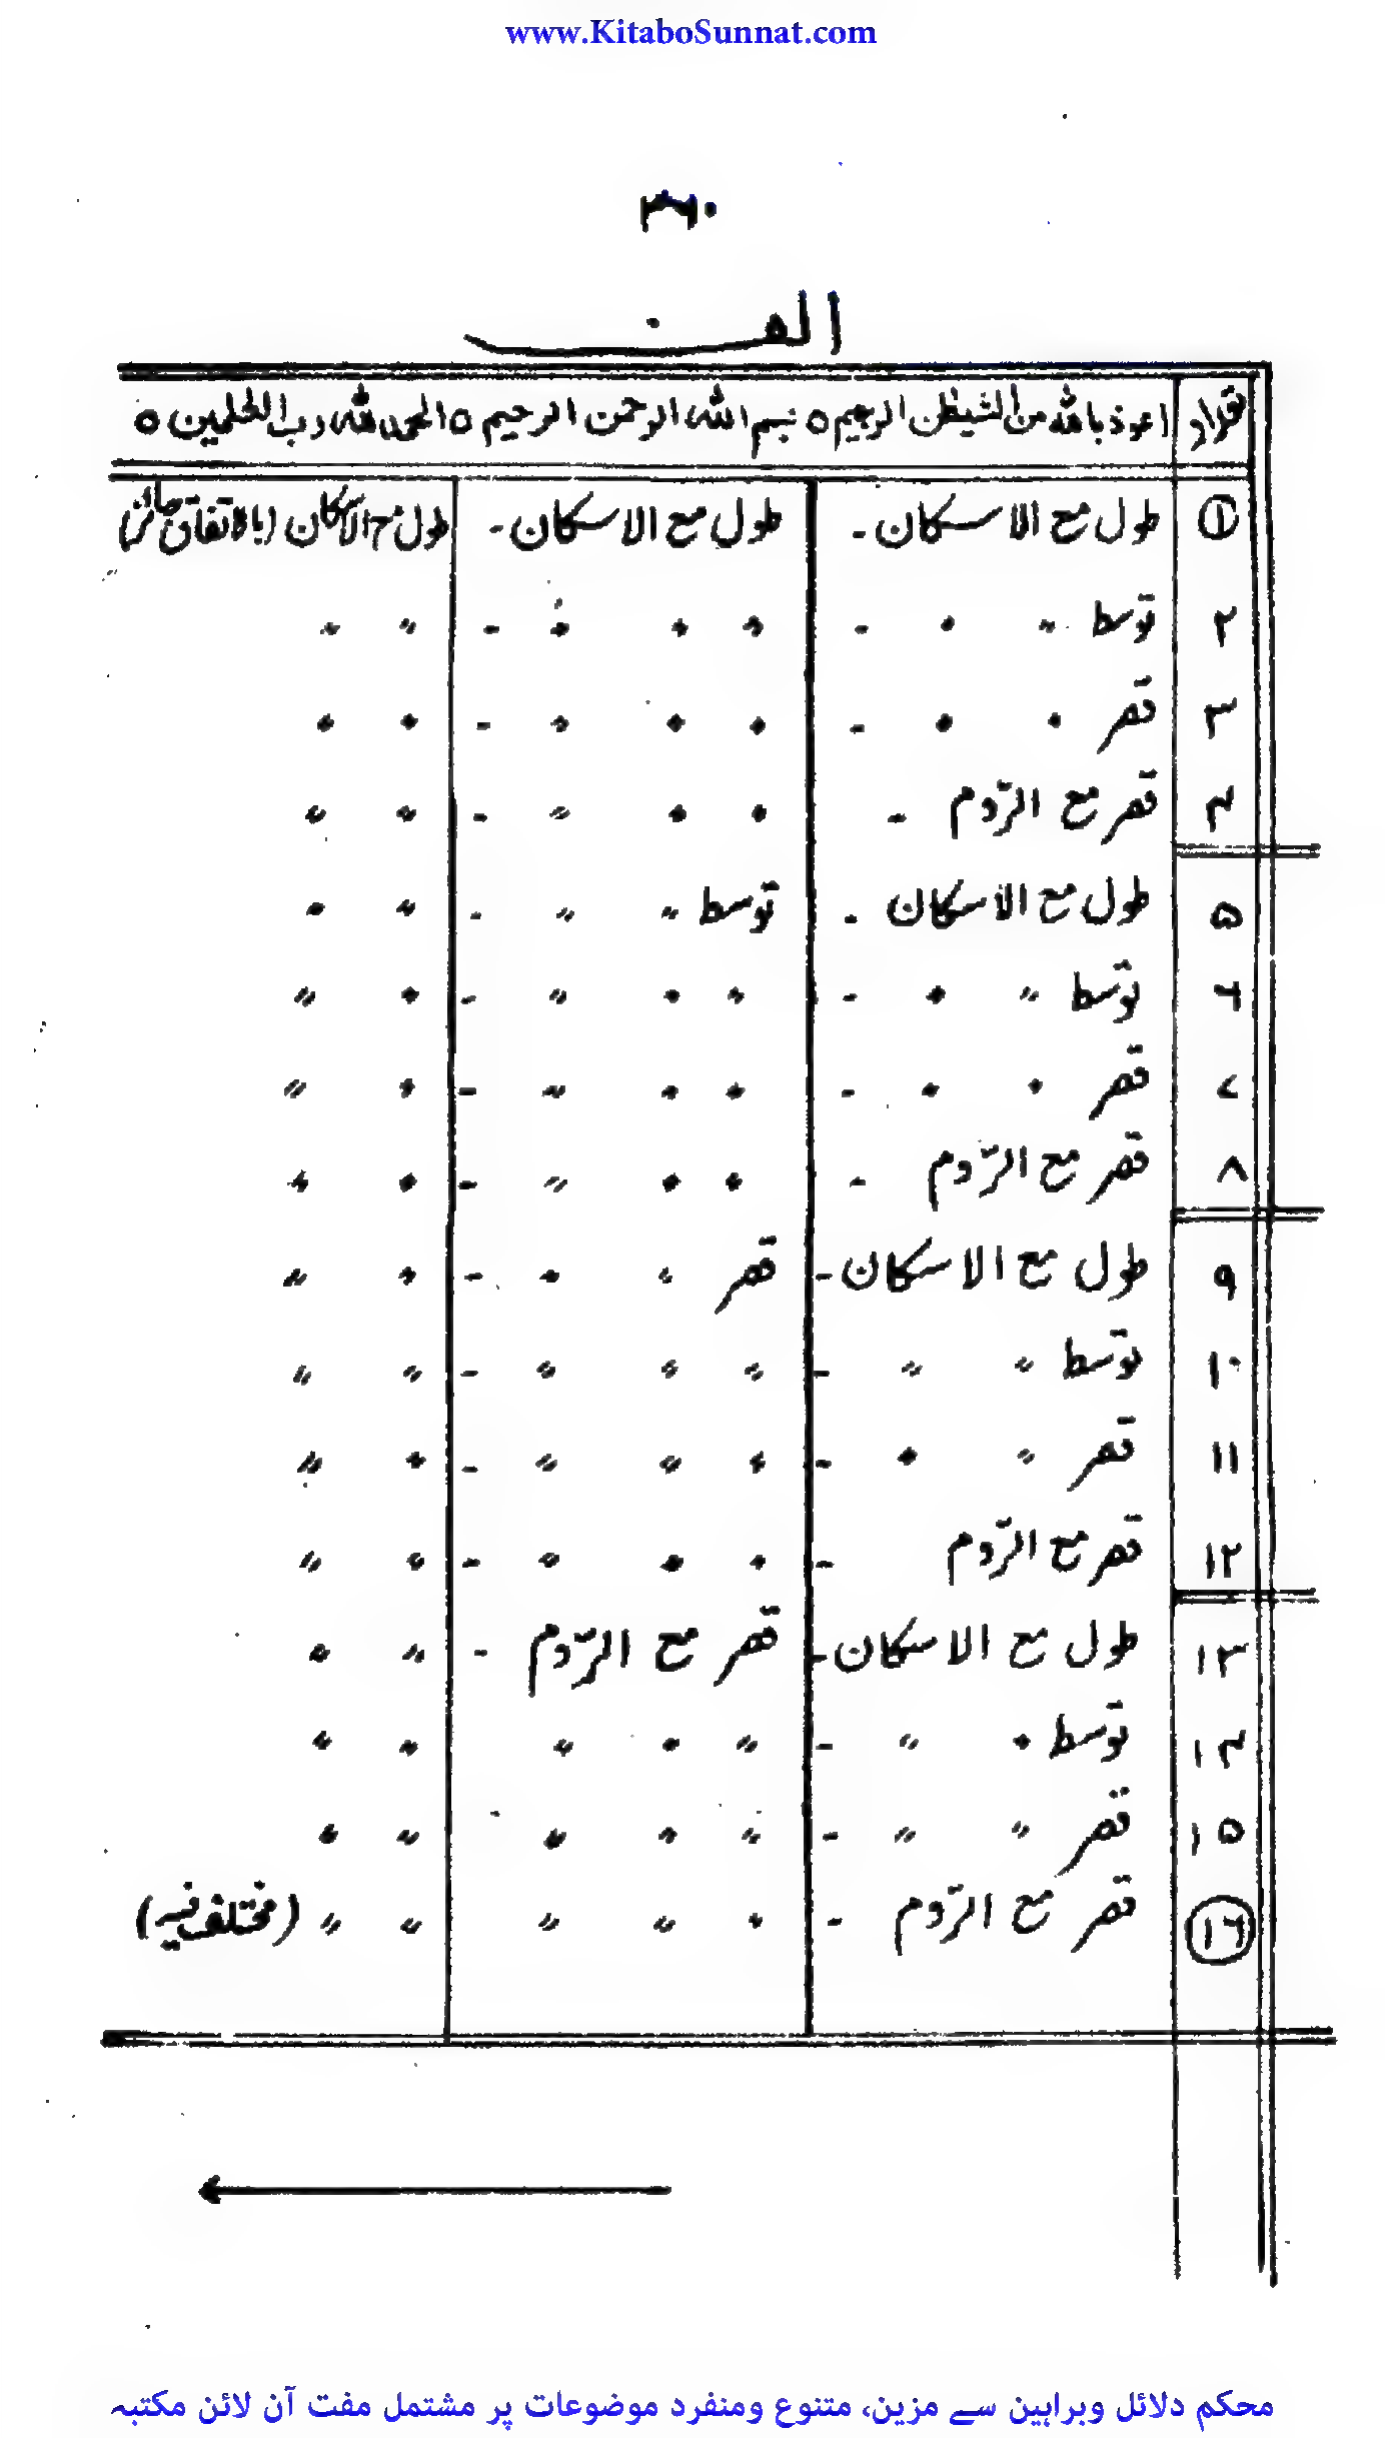 www.KitaboSunnat.com
۳۶۰
الف
تعداد اعوذ باللہ من الشیطٰن الرجیم ○ بسم اللہ الرحمٰن الرحیم ○ الحمد للہ رب العٰلمین ○
① طول مع الاسکان - طول مع الاسکان - طول مع الاسکان (بالاتفاق جائز)
۲ توسط 〃 〃 - 〃 〃 〃 - 〃 〃
۳ قصر 〃 〃 - 〃 〃 〃 - 〃 〃
۴ قصر مع الرّوم - 〃 〃 〃 - 〃 〃
۵ طول مع الاسکان - توسط 〃 〃 - 〃 〃
۶ توسط 〃 〃 - 〃 〃 〃 - 〃 〃
۷ قصر 〃 〃 - 〃 〃 〃 - 〃 〃
۸ قصر مع الرّوم - 〃 〃 〃 - 〃 〃
۹ طول مع الاسکان - قصر 〃 〃 - 〃 〃
۱۰ توسط 〃 〃 - 〃 〃 〃 - 〃 〃
۱۱ قصر 〃 〃 - 〃 〃 〃 - 〃 〃
۱۲ قصر مع الرّوم - 〃 〃 〃 - 〃 〃
۱۳ طول مع الاسکان - قصر مع الرّوم - 〃 〃
۱۴ توسط 〃 〃 - 〃 〃 〃 〃 〃
۱۵ قصر 〃 〃 - 〃 〃 〃 〃 〃
⑯ قصر مع الرّوم - 〃 〃 〃 〃 〃 (مختلف فیہ)
محکم دلائل وبراہین سے مزین، متنوع ومنفرد موضوعات پر مشتمل مفت آن لائن مکتبہ